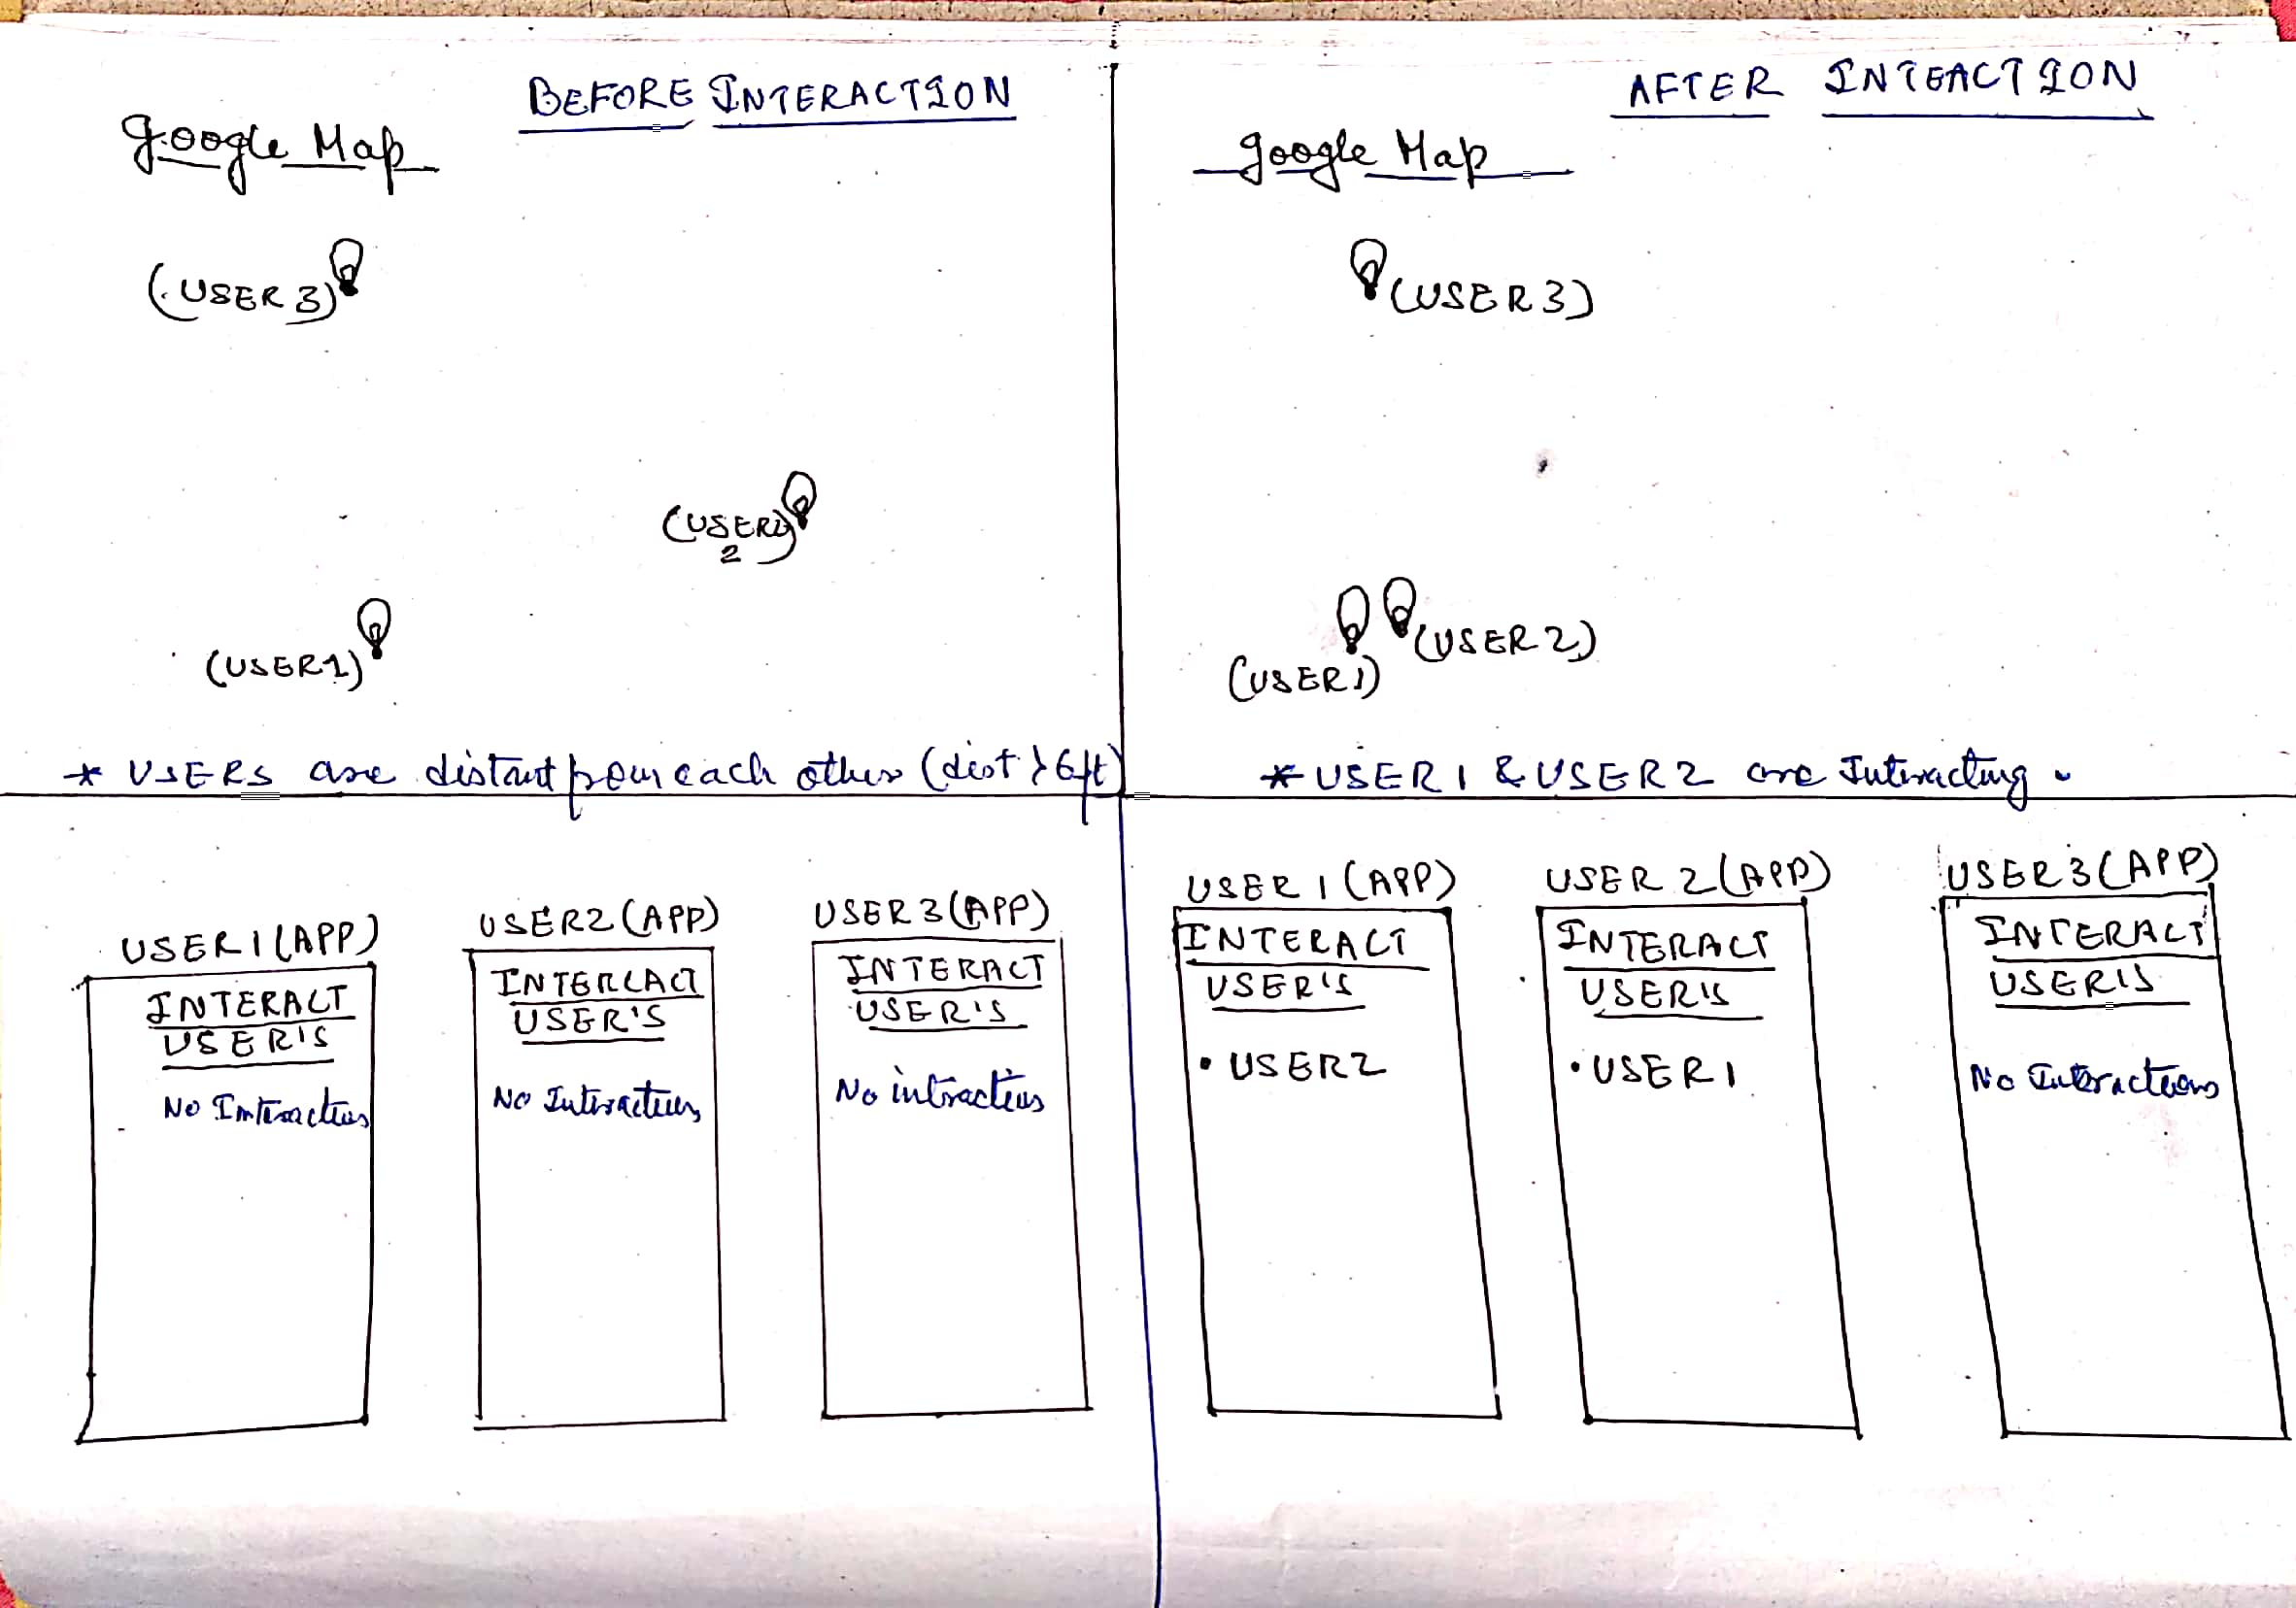 BEFORE INTERACTION
Google Map
(USER 3)
(USER
2
(USER1)
* USERS are distant from each other (dist > 6ft)
USER1(APP)
INTERACT
USER'S
No Interactions
USER2(APP)
INTERLACT
USER'S
No Interactions
USER3(APP)
INTERACT
USER'S
No interactions
AFTER INTEACTION
Google Map
(USER3)
(USER2)
(USER1)
* USER1 & USER2 are Interacting.
USER1(APP)
INTERACT
USER'S
• USER2
USER2(APP)
INTERACT
USER'S
• USER1
USER3(APP)
INTERACT
USER'S
No Interactions